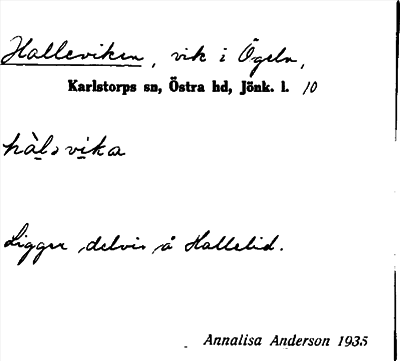 Halleviken, vik i Ögeln,
Karlstorps sn, Östra hd, Jönk. l. 10
hàlsvika
Ligger delvis å Hallelid.
Annalisa Anderson 1935